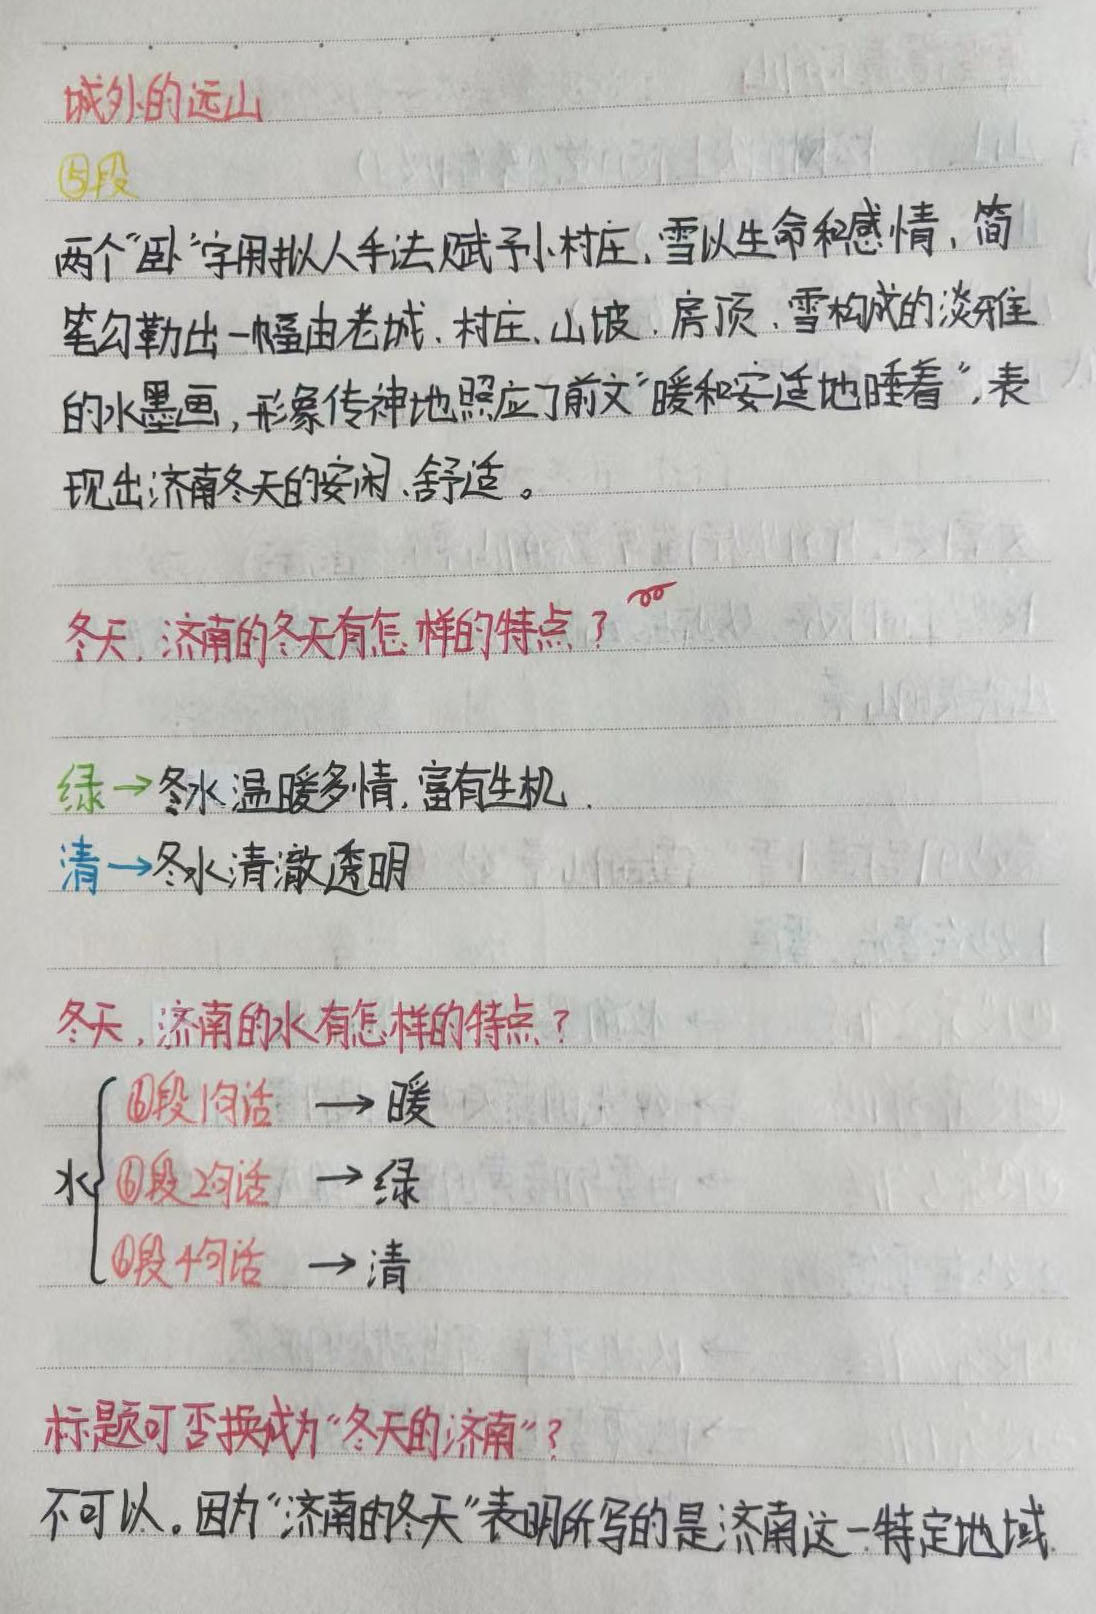 城外的远山
⑤段
两个“卧”字用拟人手法赋予小村庄、雪以生命和感情，简
笔勾勒出一幅由老城、村庄、山坡、房顶、雪构成的淡雅
的水墨画，形象传神地照应了前文“暖和安适地睡着”，表
现出济南冬天的安闲、舒适。
冬天，济南的冬天有怎样的特点？
绿→冬水温暖多情，富有生机．
清→冬水清澈透明
冬天，济南的水有怎样的特点？
⑥段1句话 → 暖
水 ⑥段2句话 → 绿
⑥段4句话 → 清
标题可否换成为“冬天的济南”？
不可以。因为“济南的冬天”表明所写的是济南这一特定地域